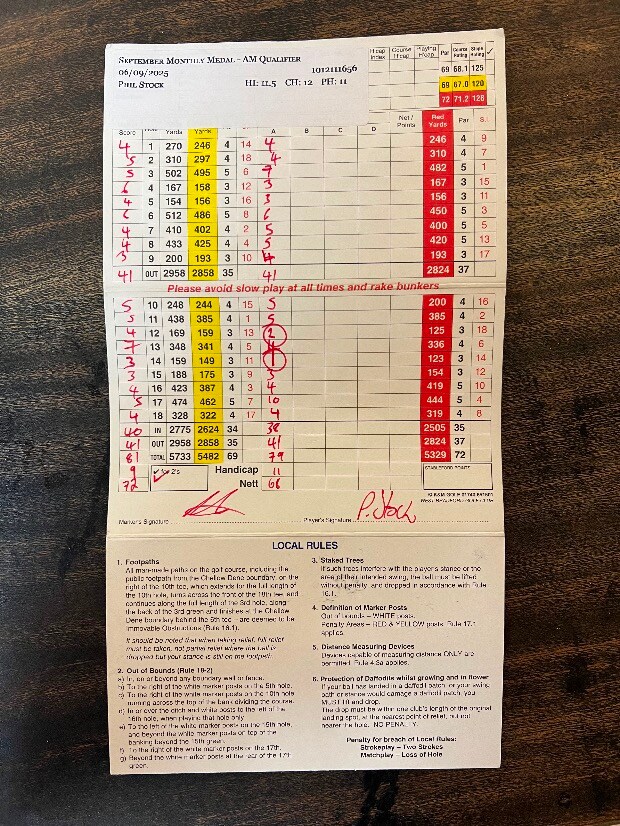 SEPTEMBER MONTHLY MEDAL - AM QUALIFIER
06/09/2025 1012111656
PHIL STOCK HI: 11.5 CH: 12 PH: 11
H'cap Index Course H'cap Playing H'cap Par Course Rating Slope Rating ✓
69 68.1 125
69 67.0 120
72 71.2 128
Score Yards Yards A B C D Net / Points Red Yards Par S.I.
4 1 270 246 4 14 4 246 4 9
5 2 310 297 4 18 4 310 4 7
5 3 502 495 5 6 7 482 5 1
6 4 167 158 3 12 3 167 3 15
4 5 154 156 3 16 3 156 3 11
6 6 512 486 5 8 6 450 5 3
4 7 410 402 4 2 5 400 5 5
4 8 433 425 4 4 5 420 5 13
3 9 200 193 3 10 4 193 3 17
41 OUT 2958 2858 35 41 2824 37
Please avoid slow play at all times and rake bunkers
5 10 248 244 4 15 5 200 4 16
5 11 438 385 4 1 5 385 4 2
4 12 169 159 3 13 2 125 3 18
7 13 348 341 4 5 4 336 4 6
3 14 159 149 3 11 1 123 3 14
3 15 188 175 3 9 3 154 3 12
4 16 423 387 4 3 4 419 5 10
5 17 474 462 5 7 10 444 5 4
4 18 328 322 4 17 4 319 4 8
40 IN 2775 2624 34 38 2505 35
41 OUT 2958 2858 35 41 2824 37
81 TOTAL 5733 5482 69 79 5329 72
9 ✓ for 2's Handicap 11 STABLEFORD POINTS
72 Nett 68
Marker's Signature Player's Signature P. Stock
LOCAL RULES
1. Footpaths
All man-made paths on the golf course, including the
public footpath from the Chellow Dene boundary, on the
right of the 10th tee, which extends for the full length of
the 10th hole, turns across the front of the 18th tee and
continues along the full length of the 3rd hole, along
the back of the 3rd green and finishes at the Chellow
Dene boundary behind the 5th tee - are deemed to be
Immovable Obstructions (Rule 16.1).
It should be noted that when taking relief, full relief
must be taken, not partial relief where the ball is
dropped but your stance is still on the footpath.
2. Out of Bounds (Rule 18-2)
a) In, on or beyond any boundary wall or fence.
b) To the right of the white marker posts on the 5th hole.
c) To the right of the white marker posts on the 10th hole
running across the top of the bank dividing the course.
d) In or over the ditch and white posts to the left of the
16th hole, when playing that hole only.
e) To the left of the white marker posts on the 15th hole,
and beyond the white marker posts on top of the
banking beyond the 15th green.
f) To the right of the white marker posts on the 17th.
g) Beyond the white marker posts at the rear of the 17th
green.
3. Staked Trees
If such trees interfere with the player's stance or the
area of the intended swing, the ball must be lifted
without penalty, and dropped in accordance with Rule
16.1.
4. Definition of Marker Posts
Out of bounds - WHITE posts.
Penalty Areas - RED & YELLOW posts. Rule 17.1
applies.
5. Distance Measuring Devices
Devices capable of measuring distance ONLY are
permitted. Rule 4.3a applies.
6. Protection of Daffodils whilst growing and in flower
If your ball has landed in a daffodil patch, or your swing
path or stance would damage a daffodil patch, you
MUST lift and drop.
The drop must be within one club's length of the original
landing spot, at the nearest point of relief, but not
nearer the hole. NO PENALTY.
Penalty for breach of Local Rules:
Strokeplay – Two Strokes
Matchplay – Loss of Hole